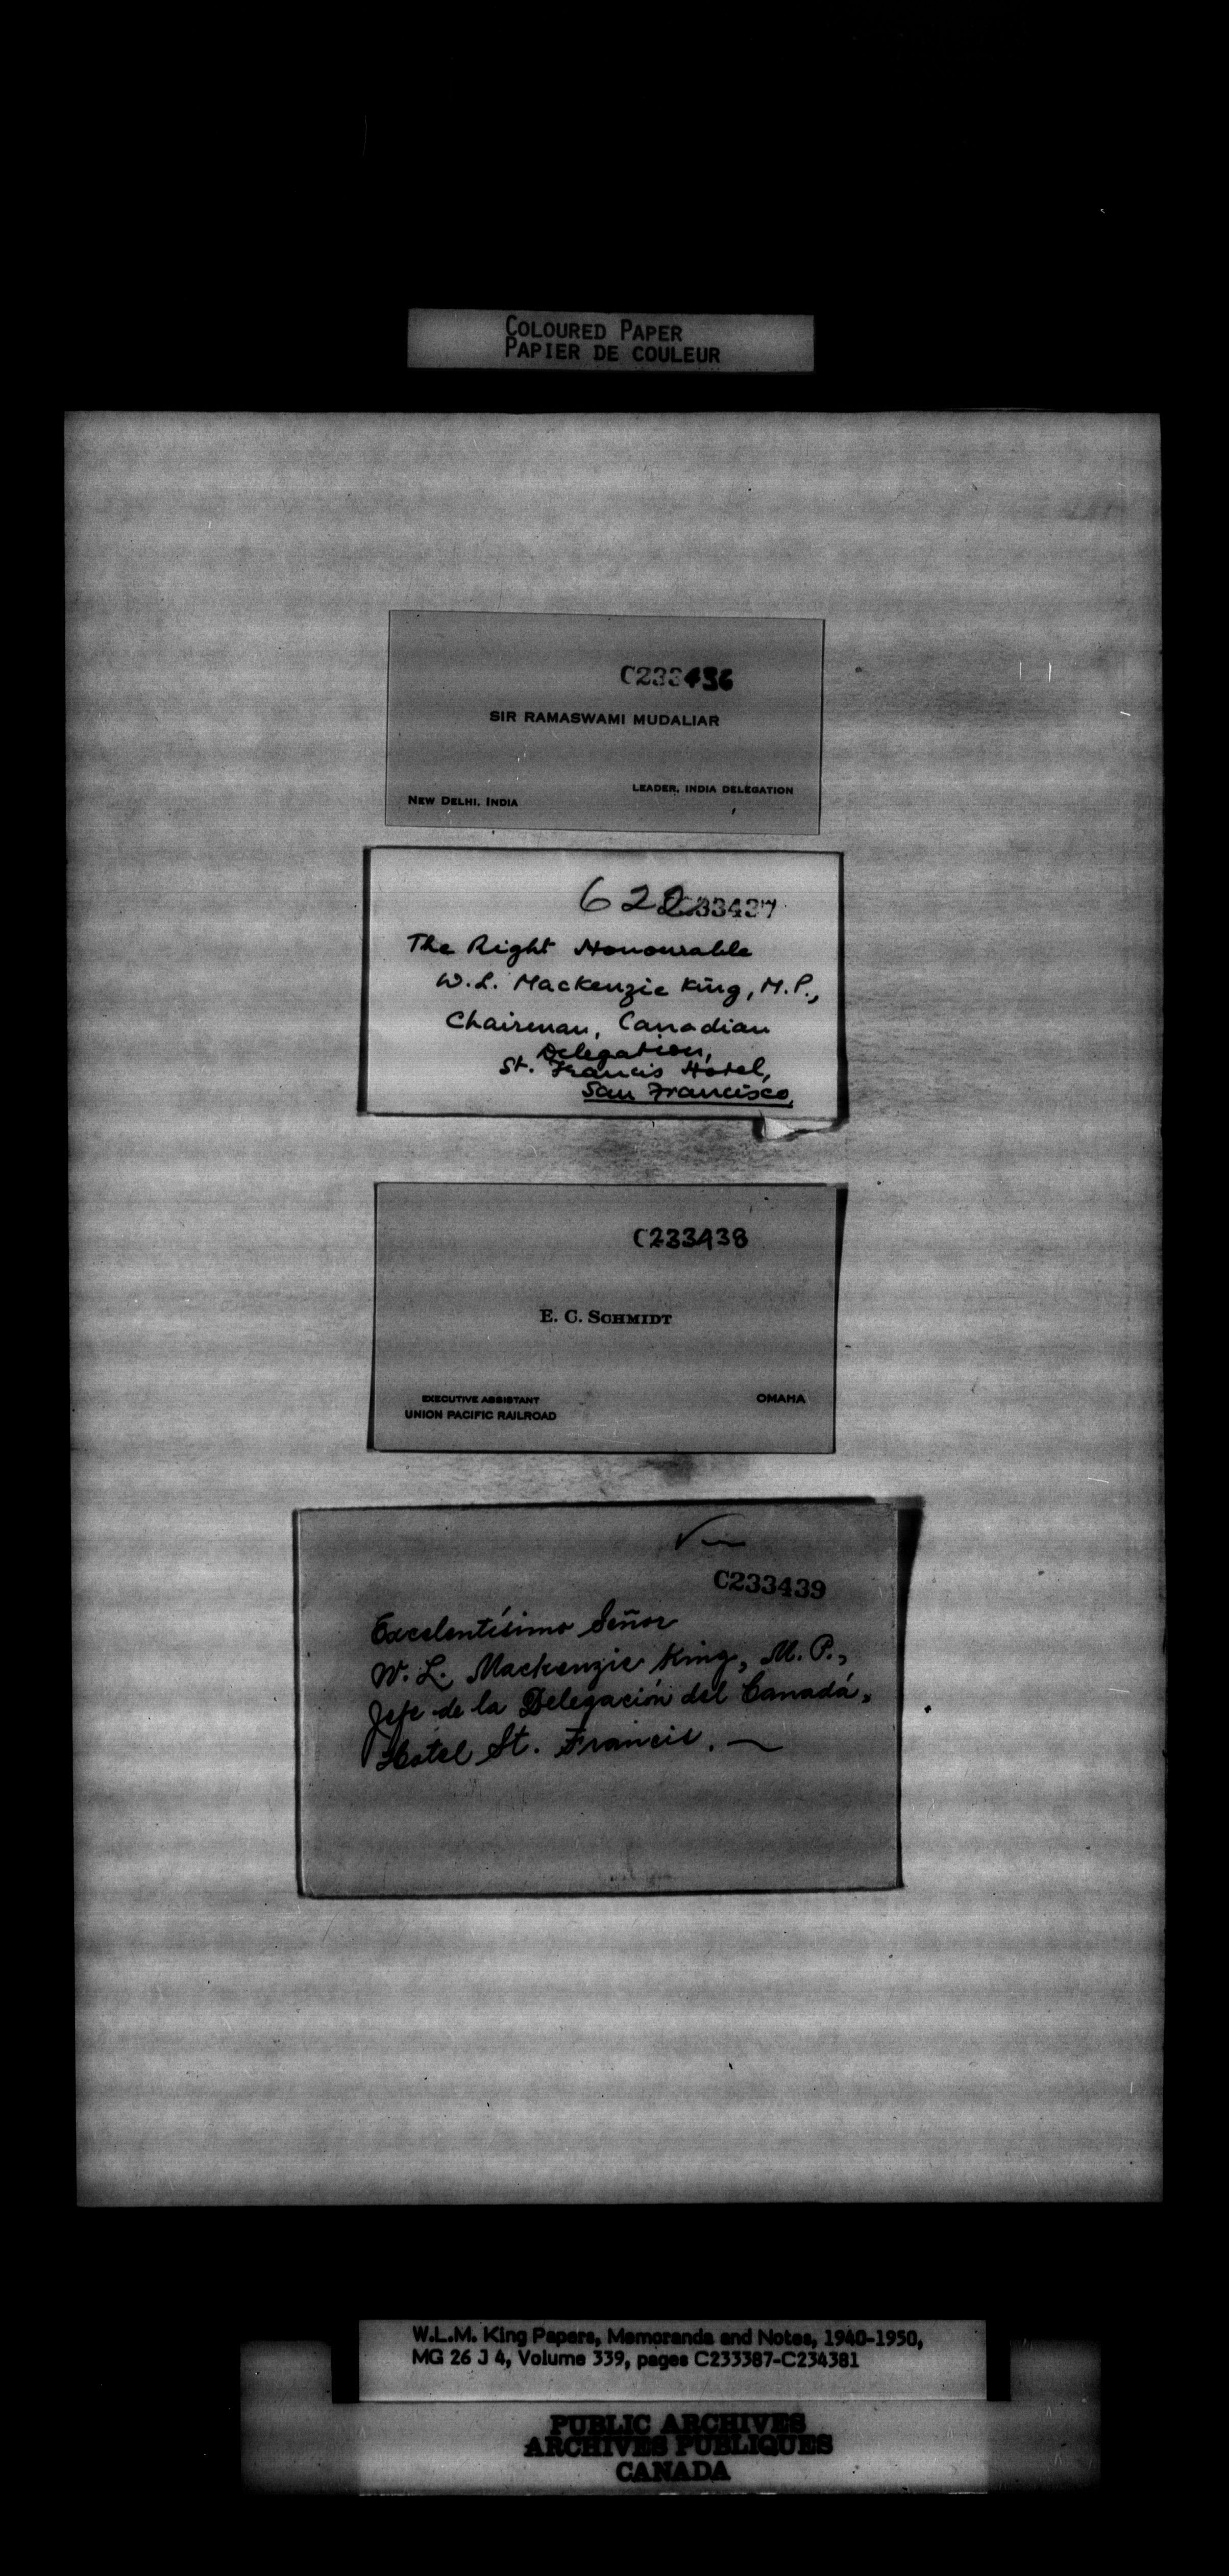 COLOURED PAPER
PAPIER DE COULEUR
C233436
SIR RAMASWAMI MUDALIAR
LEADER, INDIA DELEGATION
NEW DELHI, INDIA
622
C233437
The Right Honourable
W.L. Mackenzie King, M.P.,
Chairman, Canadian
Delegation,
St. Francis Hotel,
San Francisco,
C233438
E. C. SCHMIDT
EXECUTIVE ASSISTANT
UNION PACIFIC RAILROAD
OMAHA
C233439
Excelentísimo Señor
W. L. Mackenzie King, M. P.,
Jefe de la Delegación del Canadá,
Hotel St. Francis.
W.L.M. King Papers, Memoranda and Notes, 1940-1950,
MG 26 J 4, Volume 339, pages C233387-C234381
PUBLIC ARCHIVES
ARCHIVES PUBLIQUES
CANADA